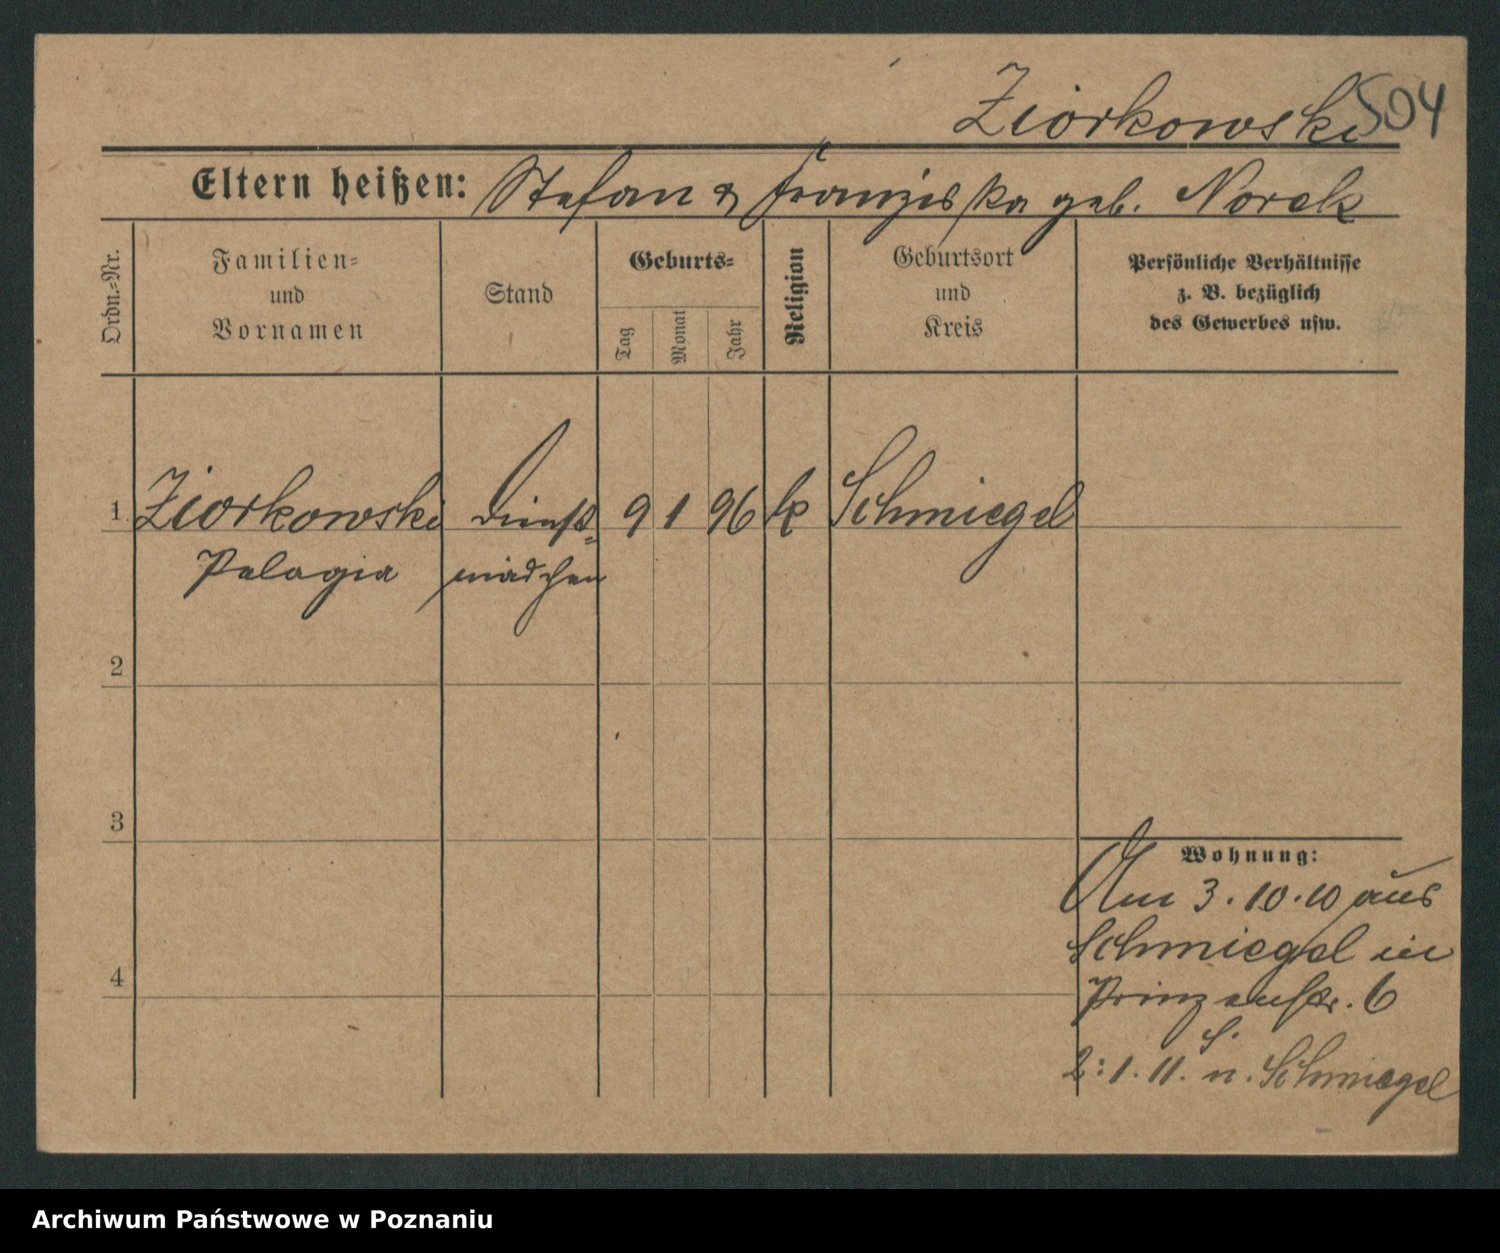 Ziorkowski 504
Eltern heißen: Stefan & Franziska geb. Norek
Ordn.-Nr.
Familien-
und
Vornamen
Stand
Geburts-
Tag
Monat
Jahr
Religion
Geburtsort
und
Kreis
Persönliche Verhältnisse
z. B. bezüglich
des Gewerbes usw.
1. Ziorkowski Dienst= 9 1 96 k Schmiegel
Pelagia mädchen
2
3
Wohnung:
Am 3.10.10 aus
Schmiegel in
4
Prinzenstr. 6
S.
2:1.11. n. Schmiegel
Archiwum Państwowe w Poznaniu